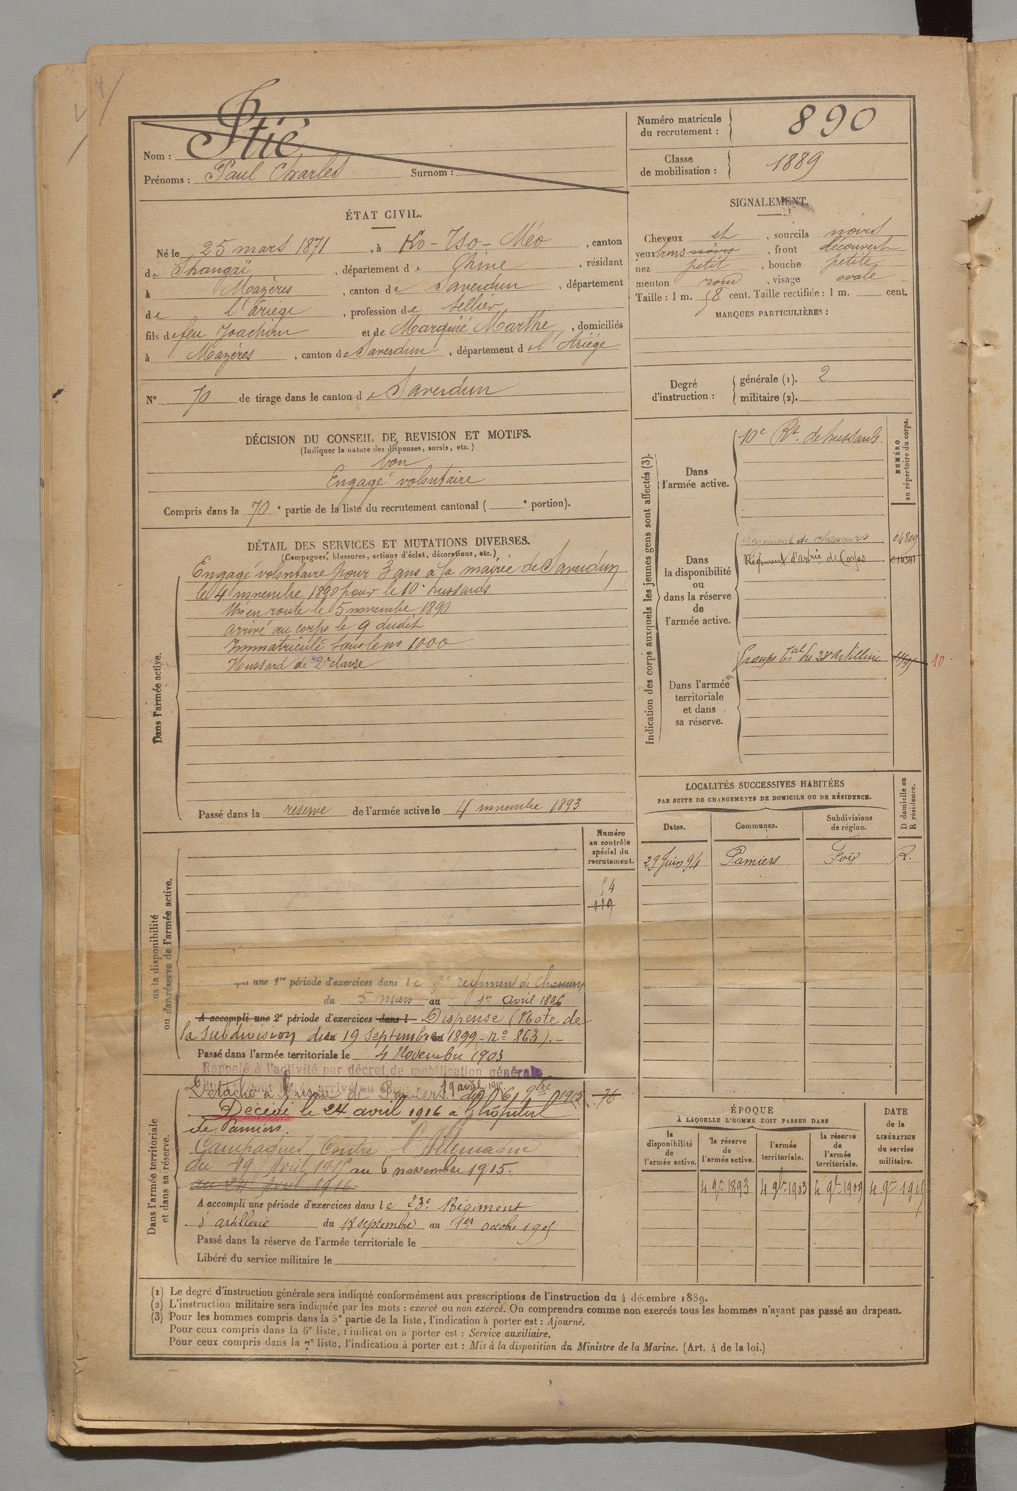 Nom : Stié
Prénoms : Paul Charles Surnom :
Numéro matricule du recrutement : 890
Classe de mobilisation : 1889
ÉTAT CIVIL.
Né le 25 mars 1871, à Ko-Tso-Méo, canton
de Shangaï, département de Chine, résidant
à Mazères, canton de Saverdun, département
de l'Ariège, profession de sellier,
fils de feu Joachim et de Marquié Marthe, domiciliés
à Mazères, canton de Saverdun, département de l'Ariège
N° 70 de tirage dans le canton de Saverdun
SIGNALEMENT.
Cheveux et, sourcils noirs
yeux, front découvert
nez petit, bouche petite
menton rond, visage ovale
Taille : 1 m. 58 cent. Taille rectifiée : 1 m. cent.
MARQUES PARTICULIÈRES :
Degré d'instruction : générale (1). 2
militaire (2).
DÉCISION DU CONSEIL DE REVISION ET MOTIFS.
(Indiquer la nature des dispenses, sursis, etc.)
bon
Engagé volontaire
Compris dans la 70e partie de la liste du recrutement cantonal ( e portion).
DÉTAIL DES SERVICES ET MUTATIONS DIVERSES.
(Campagnes, blessures, actions d'éclat, décorations, etc.)
Dans l'armée active.
Engagé volontaire pour 3 ans à la mairie de Saverdun
le 4 novembre 1890 pour le 10e hussards
Mis en route le 5 novembre 1890
Arrivé au corps le 9 dudit
Immatriculé sous le no 1000
Hussard de 2e classe
Passé dans la réserve de l'armée active le 4 novembre 1893
Indication des corps auxquels les jeunes gens sont affectés (3).
NUMÉRO au répertoire du corps.
Dans l'armée active.
10e Rt de hussards
Dans la disponibilité ou dans la réserve de l'armée active.
Régiment de chasseurs
Régiment d'artie de Corps
Dans l'armée territoriale et dans sa réserve.
Groupe tal du 23e artillerie
10
LOCALITÉS SUCCESSIVES HABITÉES
PAR SUITE DE CHANGEMENTS DE DOMICILE OU DE RÉSIDENCE.
Dates. Communes. Subdivisions de région. D domicile ou R résidence.
29 Juin 94 Pamiers Foix R.
Numéro au contrôle spécial du recrutement.
54
119
ou dans réserve de l'armée active.
une 1re période d'exercices dans le 9e régiment de Chasseurs
du 5 mars au 1er avril 1896
A accompli une 2e période d'exercices dans l Dispense (Note de
la subdivision du 19 Septembre 1899 - no 863).-
Passé dans l'armée territoriale le 4 Novembre 1903
Rappelé à l'activité par décret de mobilisation générale
Dans l'armée territoriale et dans sa réserve.
76
Décédé le 24 avril 1916 à l'hôpital
de Pamiers.
Campagnes Contre l'Allemagne
du 19 Avril 1915 au 6 novembre 1915.
au 24 Avril 1916
A accompli une période d'exercices dans le 23e Régiment
d'artillerie du 18 septembre au 1er octobre 1905
Passé dans la réserve de l'armée territoriale le
Libéré du service militaire le
ÉPOQUE
À LAQUELLE L'HOMME DOIT PASSER DANS
DATE DE LA LIBÉRATION du service militaire.
la disponibilité de l'armée active. la réserve de l'armée active. l'armée territoriale. la réserve de l'armée territoriale.
4 9bre 1893 4 9bre 1903 4 9bre 1909 4 9bre 1915
(1) Le degré d'instruction générale sera indiqué conformément aux prescriptions de l'instruction du 4 décembre 1889.
(2) L'instruction militaire sera indiquée par les mots : exercé ou non exercé. On comprendra comme non exercés tous les hommes n'ayant pas passé au drapeau.
(3) Pour les hommes compris dans la 5e partie de la liste, l'indication à porter est : Ajourné.
Pour ceux compris dans la 6e liste, l'indication à porter est : Service auxiliaire.
Pour ceux compris dans la 7e liste, l'indication à porter est : Mis à la disposition du Ministre de la Marine. (Art. 4 de la loi.)